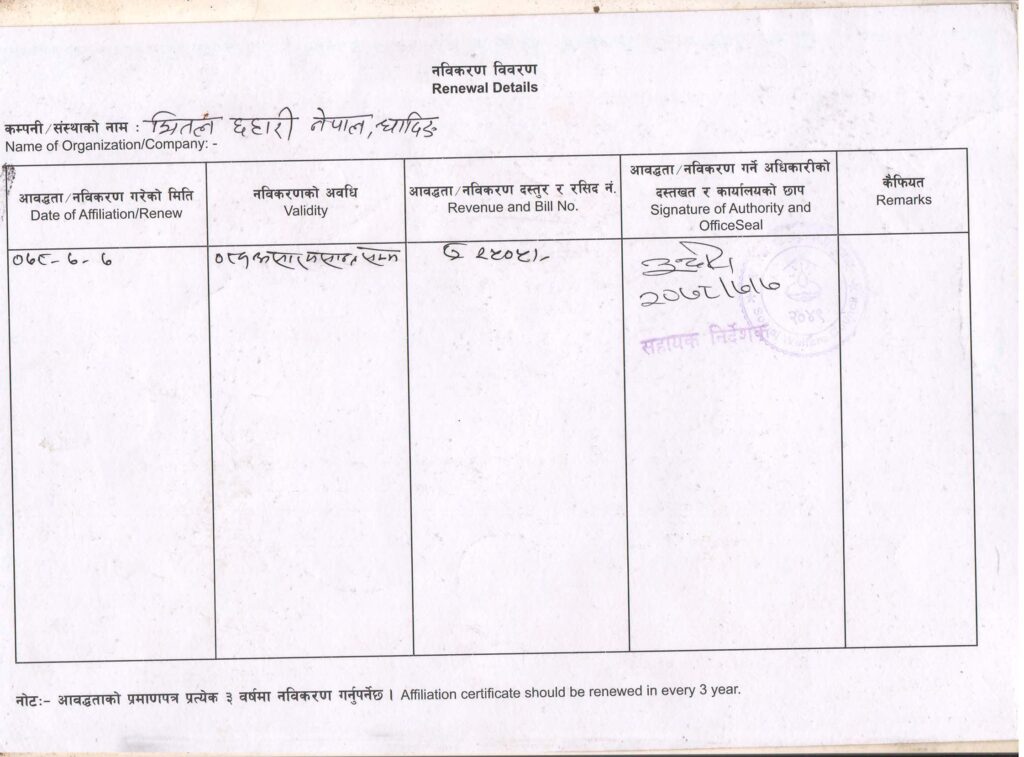 नविकरण विवरण
Renewal Details
कम्पनी/संस्थाको नाम : शितल छहारी नेपाल, धादिङ
Name of Organization/Company: -
आवद्धता/नविकरण गरेको मिति
Date of Affiliation/Renew
नविकरणको अवधि
Validity
आवद्धता/नविकरण दस्तुर र रसिद नं.
Revenue and Bill No.
आवद्धता/नविकरण गर्ने अधिकारीको
दस्तखत र कार्यालयको छाप
Signature of Authority and
OfficeSeal
कैफियत
Remarks
०७८-७-७
२०७८/७/७
सहायक निर्देशक
२०४९
नोटः- आवद्धताको प्रमाणपत्र प्रत्येक ३ वर्षमा नविकरण गर्नुपर्नेछ । Affiliation certificate should be renewed in every 3 year.